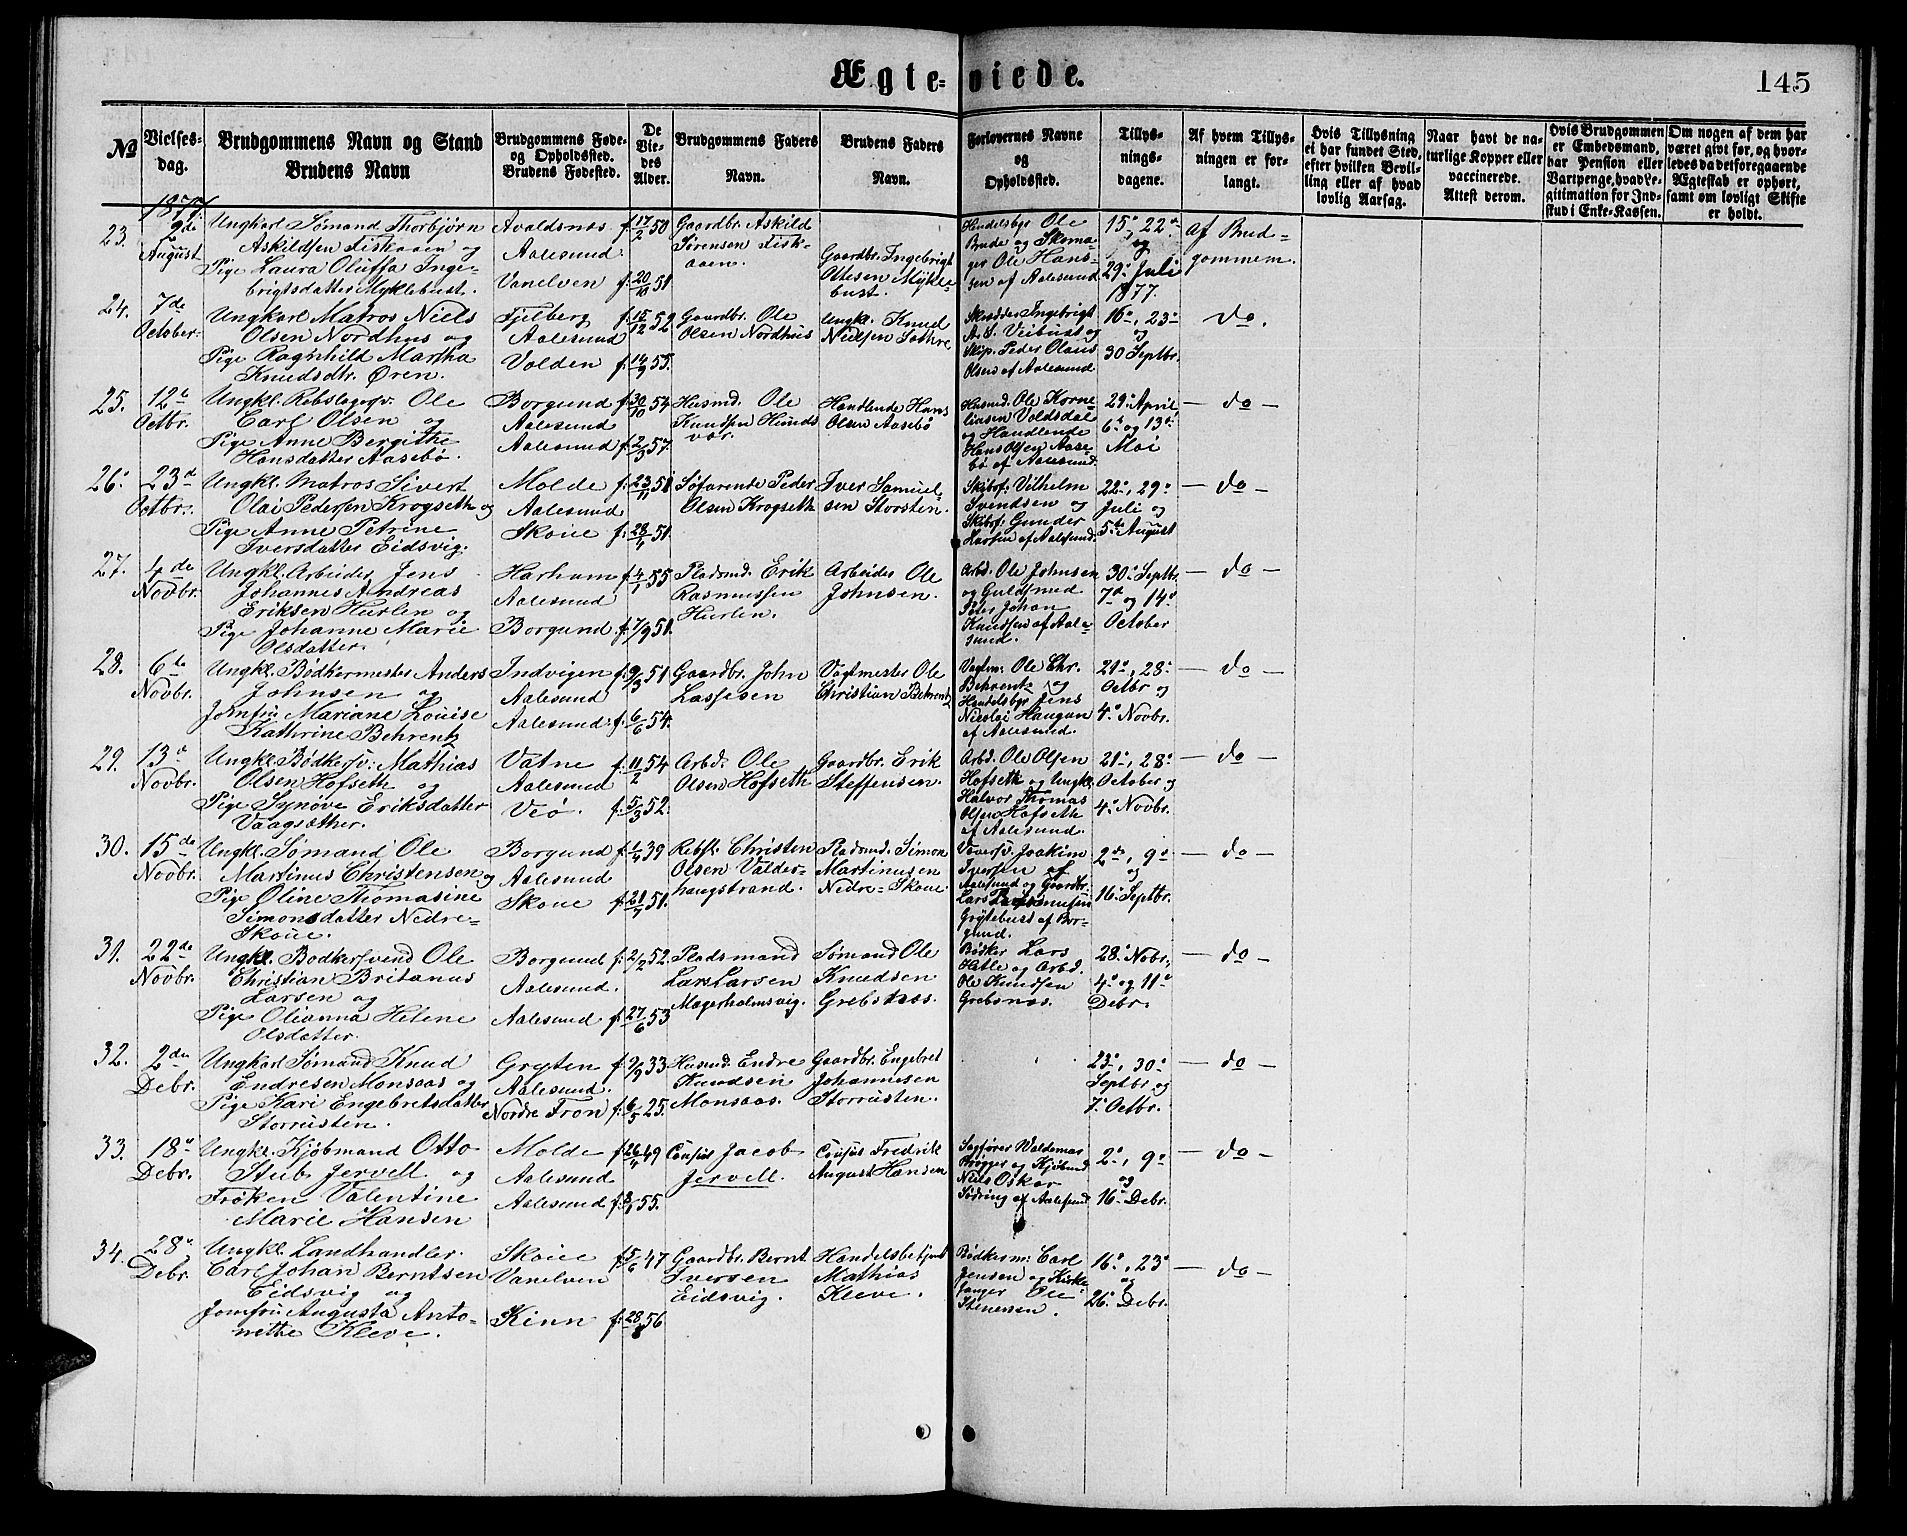 Ægteviede.
145
№
Vielses-
dag.
Brudgommens Navn og Stand
Brudens Navn
Brudgommens Føde-
og Opholdssted.
Brudens Fødested.
De
Vie-
des
Alder.
Brudgommens Faders
Navn.
Brudens Faders
Navn.
Forlovernes Navne
og
Opholdssted.
Tillys-
nings-
dagene.
Af hvem Tillys-
ningen er for-
langt.
Hvis Tillysning
ei har fundet Sted,
efter hvilken Bevil-
ling eller af hvad
lovlig Aarsag.
Naar havt de na-
turlige Kopper eller
vaccinerede.
Attest derom.
Hvis Brudgommen
er Embedsmand,
har Pension eller
Vartpenge, hvad Le-
gitimation for Ind-
skud i Enke-Kassen.
Om nogen af dem har
været gift før, og hvor-
ledes da det foregaaende
Ægteskab er ophørt,
samt om lovligt Skifte
er holdt.
1877
23.
2de
August
Ungkarl Sømand Thorbjørn
Askildsen Fiskaaen og
Pige Laura Oluffa Inge-
brigtsdatter Myklebust.
Avaldsnæs
Aalesund.
Vanelven
f. 17/2 50
f. 20/10 51
Gaardbr. Askild
Sørensen Fisk-
aaen.
Gaardbr. Ingebrigt
Ottesen Mykle-
bust.
Handelsbgr Ole
Brude og Skoma-
ger Ole Hans-
sen af Aalesund
15de, 22de
og
29de Juli
1877.
Af Brud-
gommen.
24.
7de
October.
Ungkarl Matros Niels
Olsen Nordhus og
Pige Ragnhild Martha
Knudsdtr. Øren.
Fjelberg
Aalesund
Volden
f. 15/12 52
f. 14/9 55.
Gaardbr. Ole
Olsen Nordhuis
Ungkl. Knud
Nielsen Sæthre
Skrædder Ingebrigt
A. S. Veibust og
Skip. Peder Olaus
Olsen af Aalesund
16de, 23de
og
30 Septbr.
do.
25.
12te
Octbr.
Ungkl. Rebslagersv. Ole
Carl Olsen og
Pige Anne Bergithe
Hansdatter Aasebø.
Borgund
Aalesund
Aalesund
f. 30/10 54
f. 2/3 57.
Husmd. Ole
Knudsen Hunds
vær.
Handlende Hans
Olsen Aasebø
Husmd. Ole Korne-
liusen Voldsdal
og Handlende
Hans Olsen Aase-
bø af Aalesund.
29de April,
6te og 13de
Mai
— do —
26.
23de
Octbr.
Ungkl. Matros Sivert
Olai Pedersen Krogseth og
Pige Anne Petrine
Iversdatter Eidsvig.
Molde
Aalesund
Skoue
f. 23/11 51
f. 28/4 51.
Søfarende Peder
Olsen Krogseth
Iver Samuel-
sen Storsten.
Skibsf: Vilhelm
Svendsen og
Skibsf: Gunder
Larsen af Aalesund.
22de, 29de
Juli og
5te August
— do —
27.
4de
Novbr.
Ungkl. Arbeider Jens
Johannes Andreas
Eriksen Hurlen og
Pige Johanne Marie
Olsdatter.
Harham
Aalesund
Borgund
f. 4/1 55
f. 7/9 51.
Pladsmd. Erik
Rasmussen
Hurlen.
Arbeider Ole
Johnsen.
Arbd. Ole Johnsen
og Guldsmed
Peter Johan
Knudsen af Aale-
sund.
30te Septbr.
7de og 14de
October
— do —
28.
6te
Novbr.
Ungkl. Bødkermester Anders
Johnsen og
Jomfru Mariane Louise
Kathrine Behrentz
Indvigen
Aalesund
Aalesund.
f. 9/3 51
f. 6/6 54.
Gaardbr. John
Lassesen
Vagtmester Ole
Christian Behrentz
Vagtm: Ole Chr.
Behrentz og
Handelsbgr Jens
Nicolai Haugan
af Aalesund.
21de, 28de
Octbr og
4de Novbr.
— do —
29.
13de
Novbr.
Ungkl. Bødkersv: Mathias
Olsen Hofseth og
Pige Synøve Eriksdatter
Vaagsæther.
Vatne
Aalesund
Veø.
f. 11/2 54
f. 5/3 52.
Arbd. Ole
Olsen Hofseth
Gaardbr. Erik
Steffensen.
Arbd. Ole Olsen
Hofseth og Ungkl.
Halvor Thomas
Olsen Hofseth
af Aalesund.
21de, 28de
October og
4de Novbr.
— do —
30.
15de
Novbr.
Ungkl. Sømand Ole
Martinus Christensen og
Pige Oline Thomasine
Simonsdatter Nedre-
Skoue.
Borgund
Aalesund
Skoue
f. 1/4 39
f. 21/4 51.
Rebsl. Christen
Olsen Valder-
haugstrand.
Pladsmd. Simon
Martinusen
Nedre-Skoue
Væversv. Joakim
Iversen af
Aalesund og Gaardbr.
Lars Rasmussen
Grytebust af Bor-
gund.
2de, 9de
og
16de Septbr.
— do —
31.
22de
Novbr.
Ungkl. Bødkersvend Ole
Christian Britanus
Larsen og
Pige Olianna Helene
Olsdatter.
Borgund
Aalesund.
Aalesund
f. 2/2 52.
f. 27/6 53
Pladsmand
Lars Larsen
Magerholmsvig.
Sømand Ole
Knudsen
Grebsnæs.
Bødker Lars
Hetle og Arbd.
Ole Knudsen
Grebsnæs.
28de Novbr.,
4de og 11te
Debr.
— do —
32.
2den
Debr.
Ungkarl Sømand Knud
Endresen Monsaas og
Pige Kari Engebretsdatter
Storrusten.
Grytten
Aalesund.
Nordre Fron
f. 9/9 33
f. 6/5 25.
Husmd. Endre
Knudsen
Monsaas.
Gaardbr. Engebret
Johannesen
Storrusten.
23de, 30te
Septbr og
7de Octbr.
— do —
33.
18de
Debr.
Ungkl. Kjøbmand Otto
Stub Jervell og
Frøken Valentine
Marie Hansen
Molde
Aalesund
Aalesund
f. 26/4 49
f. 8/1 55.
Consul Jacob
Jervell.
Consul Fredrik
August Hansen
Sagfører Waldemar
Brøgger og Kjøbmd
Niels Oskar
Sødring af Aalesund
2de, 9de
og
16de Debr.
— do —
34.
28de
Debr.
Ungkl. Landhandler
Carl Johan Berntsen
Eidsvig og
Jomfru Augusta Anto-
nette Kleve.
Skoue
Vanelven
Kinn
f. 5/6 47
f. 28/8 56
Gaardbr. Bernt
Iversen
Eidsvig.
Handelsbetjent
Mathias
Kleve.
Bødkerm: Carl
Jensen og Kirke-
sanger Ole
Stenersen.
16de, 23de
og
26de Debr.
— do —